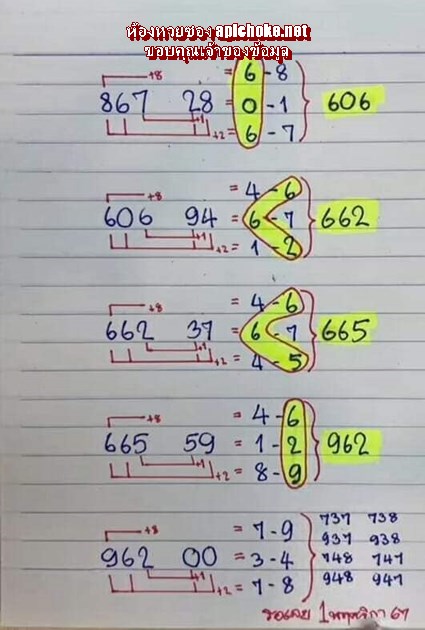 ห้องหวยซอง apichoke.net
ขอบคุณเจ้าของข้อมูล
+8 = 6 - 8
867 28 = 0 - 1 606
+1
+2 = 6 - 7
+8 = 4 - 6
606 94 = 6 - 7 662
+1
+2 = 1 - 2
+8 = 4 - 6
662 37 = 6 - 7 665
+1
+2 = 4 - 5
+8 = 4 - 6
665 59 = 1 - 2 962
+1
+2 = 8 - 9
737 738
+8 = 7 - 9 937 938
962 00 = 3 - 4 748 747
+1
+2 = 7 - 8 948 947
1 พฤศจิกา 67